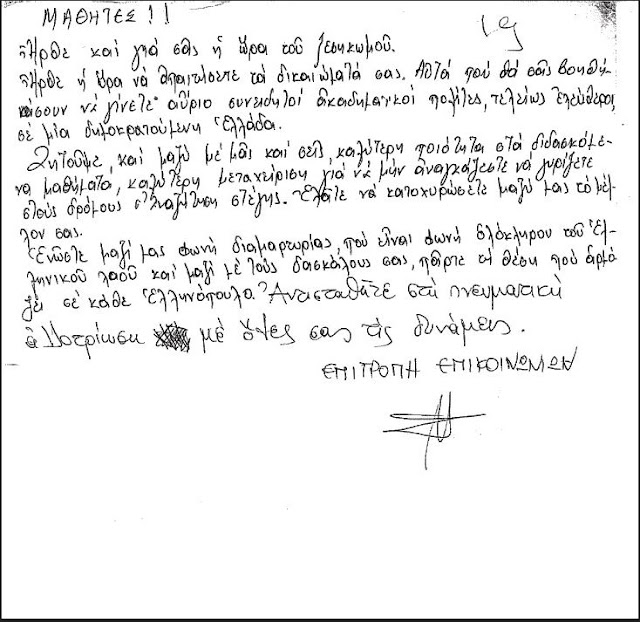 ΜΑΘΗΤΕΣ!!
Ἦρθε καί γιά σᾶς ἡ ὥρα τοῦ ξεσηκωμοῦ.
Ἦρθε ἡ ὥρα νά ἀπαιτήσετε τά δικαιώματά σας. Αὐτά πού θά σᾶς βοηθή-
σουν νά γίνετε αὔριο συνειδητοί ἀκαδημαϊκοί πολίτες, τελείως ἐλεύθεροι,
σέ μία δημοκρατούμενη Ἑλλάδα.
Ζητοῦμε, καί μαζύ μέ μᾶς καί σεῖς, καλύτερη ποιότητα στά διδασκόμε-
να μαθήματα, καλύτερη μεταχείριση γιά νά μήν ἀναγκάζεστε νά γυρίζετε
στούς δρόμους σ' ἀναζήτηση στέγης. Ἐλᾶτε νά κατοχυρώσετε μαζύ μας τό μέλ-
λον σας.
Ἑνῶστε μαζί μας φωνή διαμαρτυρίας, πού εἶναι φωνή ὁλόκληρου τοῦ Ἑλ-
ληνικοῦ λαοῦ καί μαζί μέ τούς δασκάλους σας, πάρτε τή θέση πού ἁρμό
ζει σέ κάθε Ἑλληνόπουλο. Ἀντισταθῆτε στή πνευματική
ἀλλοτρίωση μέ ὅλες σας τίς δυνάμεις.
ΕΠΙΤΡΟΠΗ ΕΠΙΚΟΙΝΩΝΙΩΝ